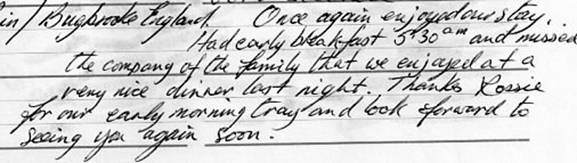 in / Bugbrooke England. Once again enjoyed our stay.
Had early breakfast 5.30am and missed
the company of the family that we enjoyed at a
very nice dinner last night. Thanks Rossie
for our early morning tray and look forward to
seeing you again soon.